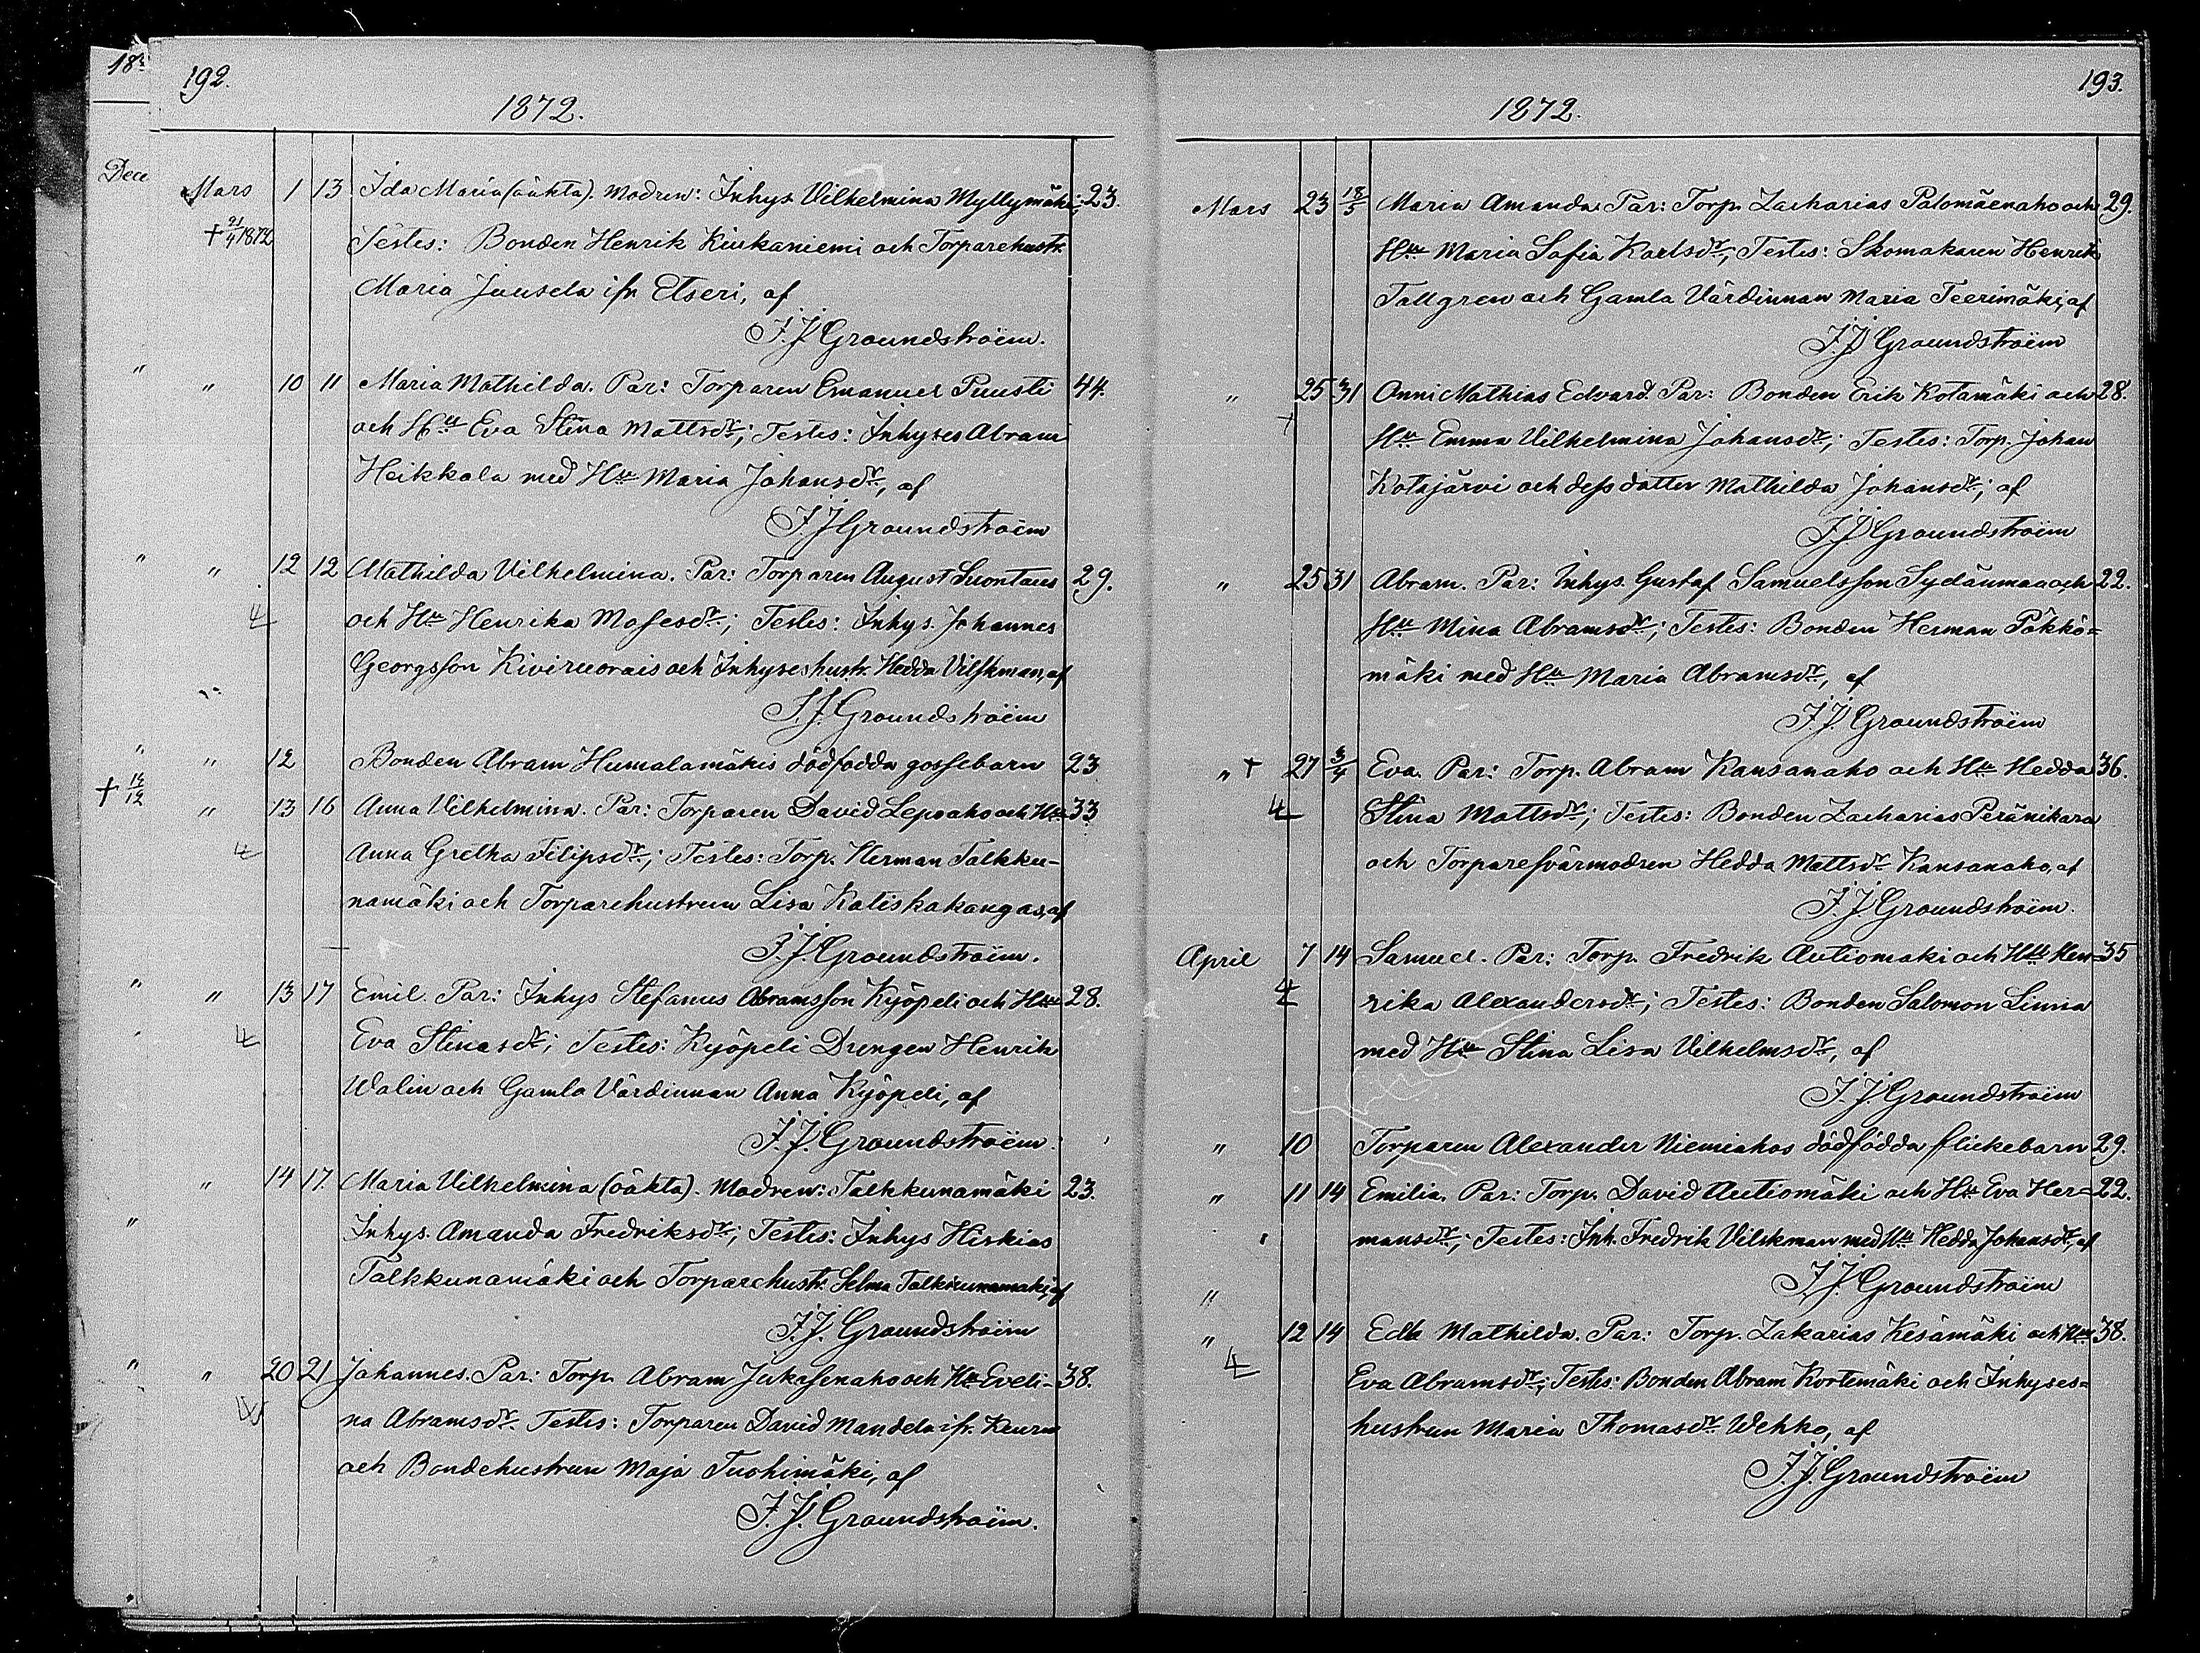 192.
1872.
Mars 1 13 Ida Maria (oäkta). Modren: Inhys Vilhelmina Myllymäki; 23.
+ 21/4 1872 Testes: Bonden Henrik Kiukaniemi och Torparehustr.
Maria Juusela ifr Etseri, af
F. J. Groundstroëm.
" 10 11 Maria Mathilda. Par: Torparen Emanuel Puusti 44.
och Hu Eva Stina Mattsdr; Testes: Inhyses Abram
Heikkala med Hu Maria Johansdr, af
F. J. Groundstroëm
" 12 12 Mathilda Vilhelmina. Par: Torparen August Luontaus 29.
och Hu Henrika Mosesdr; Testes: Inhys. Johannes
Georgsson Kiviruorais och Inhyseshustr. Hedda Vilskman, af
F. J. Groundstroëm
" 12 Bonden Abram Humalamäkis dödfödda gossebarn 23
" 13 16 Anna Vilhelmina. Par: Torparen David Lepoaho och Hu 33
Anna Gretha Filipsdr; Testes: Torp. Herman Talkku-
namäki och Torparehustrun Lisa Katiskakangas, af
F. J. Groundstroëm.
" 13 17 Emil. Par: Inhys Stefanus Abramsson Kyöpeli och Hu 28.
Eva Stinasdr; Testes: Kyöpeli Drengen Henrik
Walin och Gamla Värdinnan Anna Kyöpeli, af
F. J. Groundstroëm.
" 14 17 Maria Vilhelmina (oäkta). Modren: Talkkunamäki 23.
Inhys. Amanda Fredriksdr; Testes: Inhys Hiskias
Talkkunamäki och Torparehustr. Selma Talkkunamäki, af
F. J. Groundstroëm
" 20 21 Johannes. Par: Torp. Abram Jukasenaho och Hu Eveli- 38.
na Abramsdr. Testes: Torparen David Mandela ifr. Keuru
och Bondehustrun Maja Tuohimäki, af
F. J. Groundstroëm.
193.
1872.
Mars 23 18/5 Maria Amanda. Par: Torp. Zacharias Palomäenaho och 29.
Hu Maria Sofia Karlsdr; Testes: Skomakaren Henrik
Tallgren och Gamla Värdinnan Maria Teerimäki, af
F. J. Groundstroëm
" 25 31 Onni Mathias Edvard. Par: Bonden Erik Kotamäki och 28.
+ Hu Emma Vilhelmina Johansdr; Testes: Torp. Johan
Kotajärvi och dess dotter Mathilda Johansdr; af
F. J. Groundstroëm
" 25 31 Abram. Par: Inhys. Gustaf Samuelsson Sydänmaa och 22.
Hu Mina Abramsdr; Testes: Bonden Herman Pökkö=
mäki med Hu Maria Abramsdr, af
F. J. Groundstroëm
" + 27 3/4 Eva. Par: Torp. Abram Kansanaho och Hu Hedda 36.
Stina Mattsdr; Testes: Bonden Zacharias Peränikara
och Torparesvärmodren Hedda Mattsdr Kansanaho, af
F. J. Groundstroëm.
April 7 14 Samuel. Par: Torp. Fredrik Autiomäki och Hu Hen= 35
rika Alexandersdr; Testes: Bonden Salomon Linna
med Hu Stina Lisa Vilhelmsdr, af
F. J. Groundstroëm
" 10 Torparen Alexander Niemiahos dödfödda flickebarn 29.
" 11 14 Emilia. Par: Torp. David Autiomäki och Hu Eva Her= 22.
mansdr; Testes: Inh. Fredrik Vilskman med Hu Hedda Johansdr, af
F. J. Groundstroëm
"
" 12 14 Edla Mathilda. Par: Torp. Zakarias Kesämäki och Hu 38.
Eva Abramsdr; Testes: Bonden Abram Kortemäki och Inhyses=
hustrun Maria Thomasdr Wehko, af
F. J. Groundstroëm